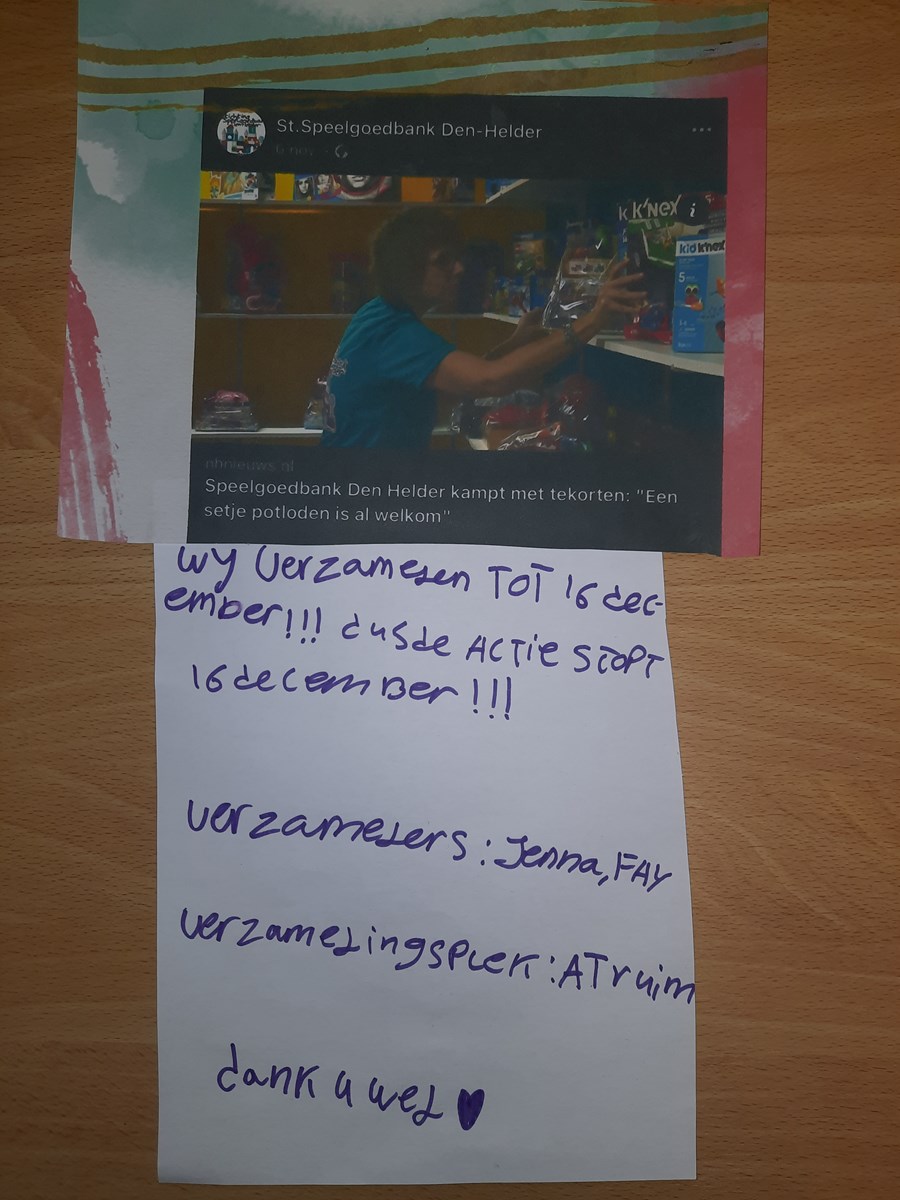 St.Speelgoedbank Den-Helder
6 nov
K'NEX
kid K'NEX
5
nhnieuws.nl
Speelgoedbank Den Helder kampt met tekorten: "Een
setje potloden is al welkom"
wy verzamelen TOT 16 dec-
ember!!! dusde ACTie STOPT
16 december!!!
verzamelers: Jenna, FAY
verzamelingsplek: ATruim
dank u wel ♥